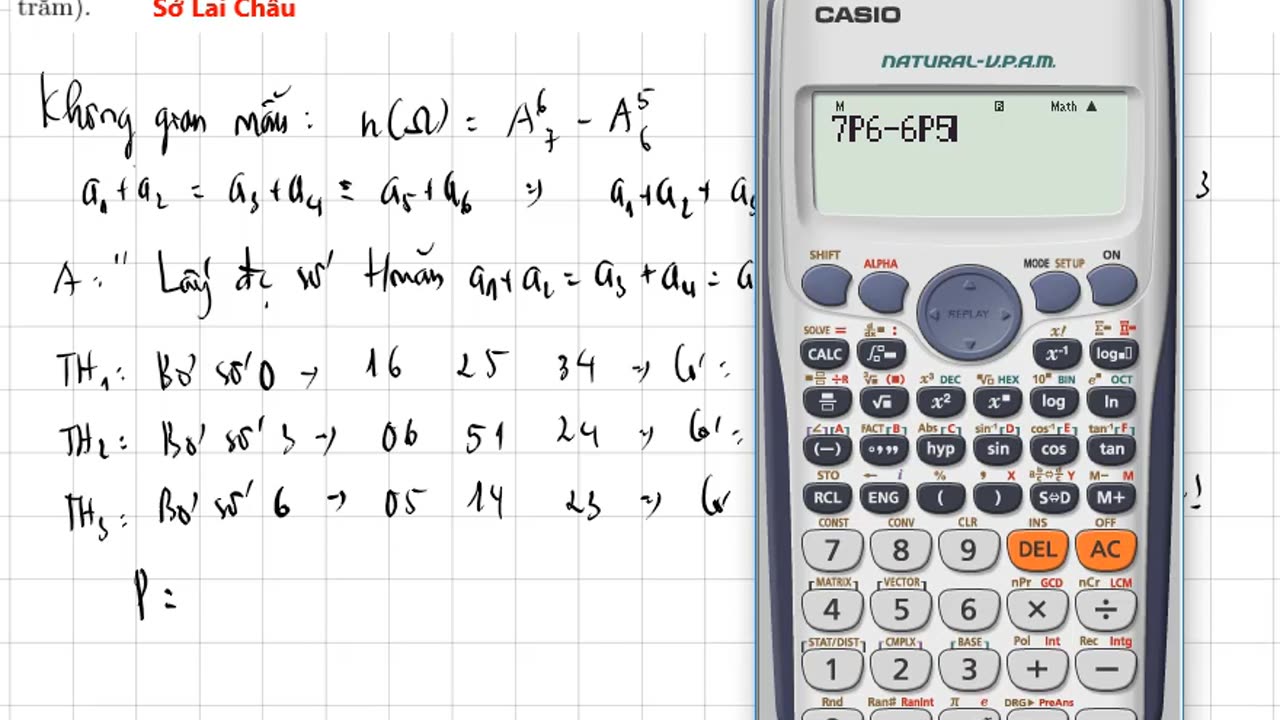 trăm). Sở Lai Châu
Không gian mẫu : n(Ω) = A⁶₇ − A⁵₆
a₁+a₂ = a₃+a₄ = a₅+a₆ ⇒ a₁+a₂+a₅ 3
A : " Lấy đc số t/mãn a₁+a₂ = a₃+a₄ = a
TH₁ : Bỏ số 0 → 16 25 34 ⇒ Có :
TH₂ : Bỏ số 3 → 06 51 24 ⇒ Có :
TH₃ : Bỏ số 6 → 05 14 23 ⇒ Có !
P =
CASIO
NATURAL-V.P.A.M.
M R Math ▲
7P6−6P5
SHIFT ALPHA REPLAY MODE SETUP ON
SOLVE = d/dx : x! Σ Π
CALC ∫ x⁻¹ log
÷R ³√ x³ DEC √ HEX 10 BIN e OCT
√ x² x log ln
∠ A FACT B Abs C sin⁻¹ D cos⁻¹ E tan⁻¹ F
(−) °,,, hyp sin cos tan
STO ← i % , X a b/c⇔d/c Y M− M
RCL ENG ( ) S⇔D M+
CONST CONV CLR INS OFF
7 8 9 DEL AC
MATRIX VECTOR nPr GCD nCr LCM
4 5 6 × ÷
STAT/DIST CMPLX BASE Pol Int Rec Intg
1 2 3 + −
Rnd Ran# RanInt π e DRG▸ PreAns